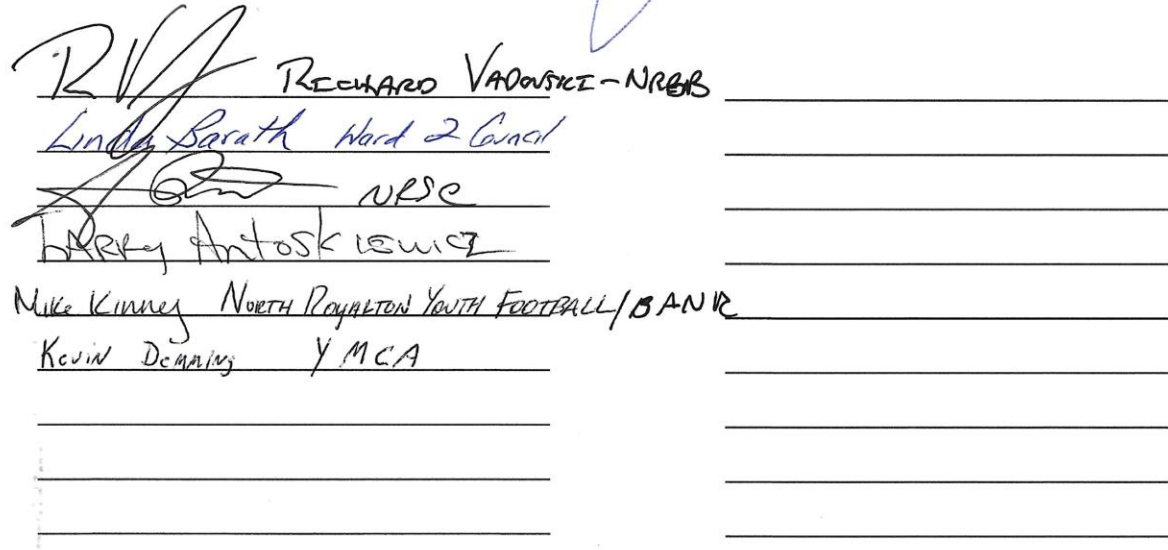 RICHARD VADOVSKI-NRBB
Linda Barath Ward 2 Council
NRSC
LARRY AntoSKIEWICZ
Mike Kinney NORTH ROYALTON YOUTH FOOTBALL/BANR
KeviN Demming YMCA